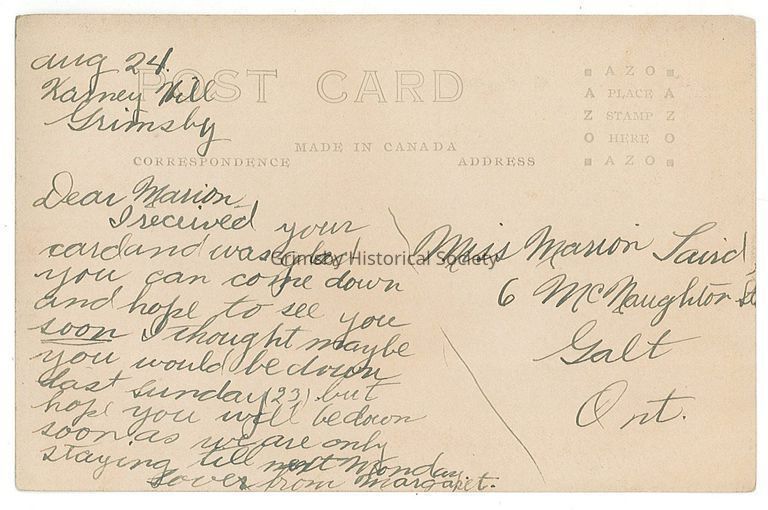 Aug 24.
Karney Hill
Grimsby
POST CARD
MADE IN CANADA
CORRESPONDENCE
ADDRESS
AZO
A PLACE A
Z STAMP Z
O HERE O
AZO
Dear Marion
I received your
card and was glad
you can come down
and hope to see you
soon I thought maybe
you would be down
last Sunday (23) but
hope you will be down
soon as we are only
staying till next Monday.
Love from Margaret.
Miss Marion Laird,
6 McNaughton St
Galt
Ont.
Grimsby Historical Society